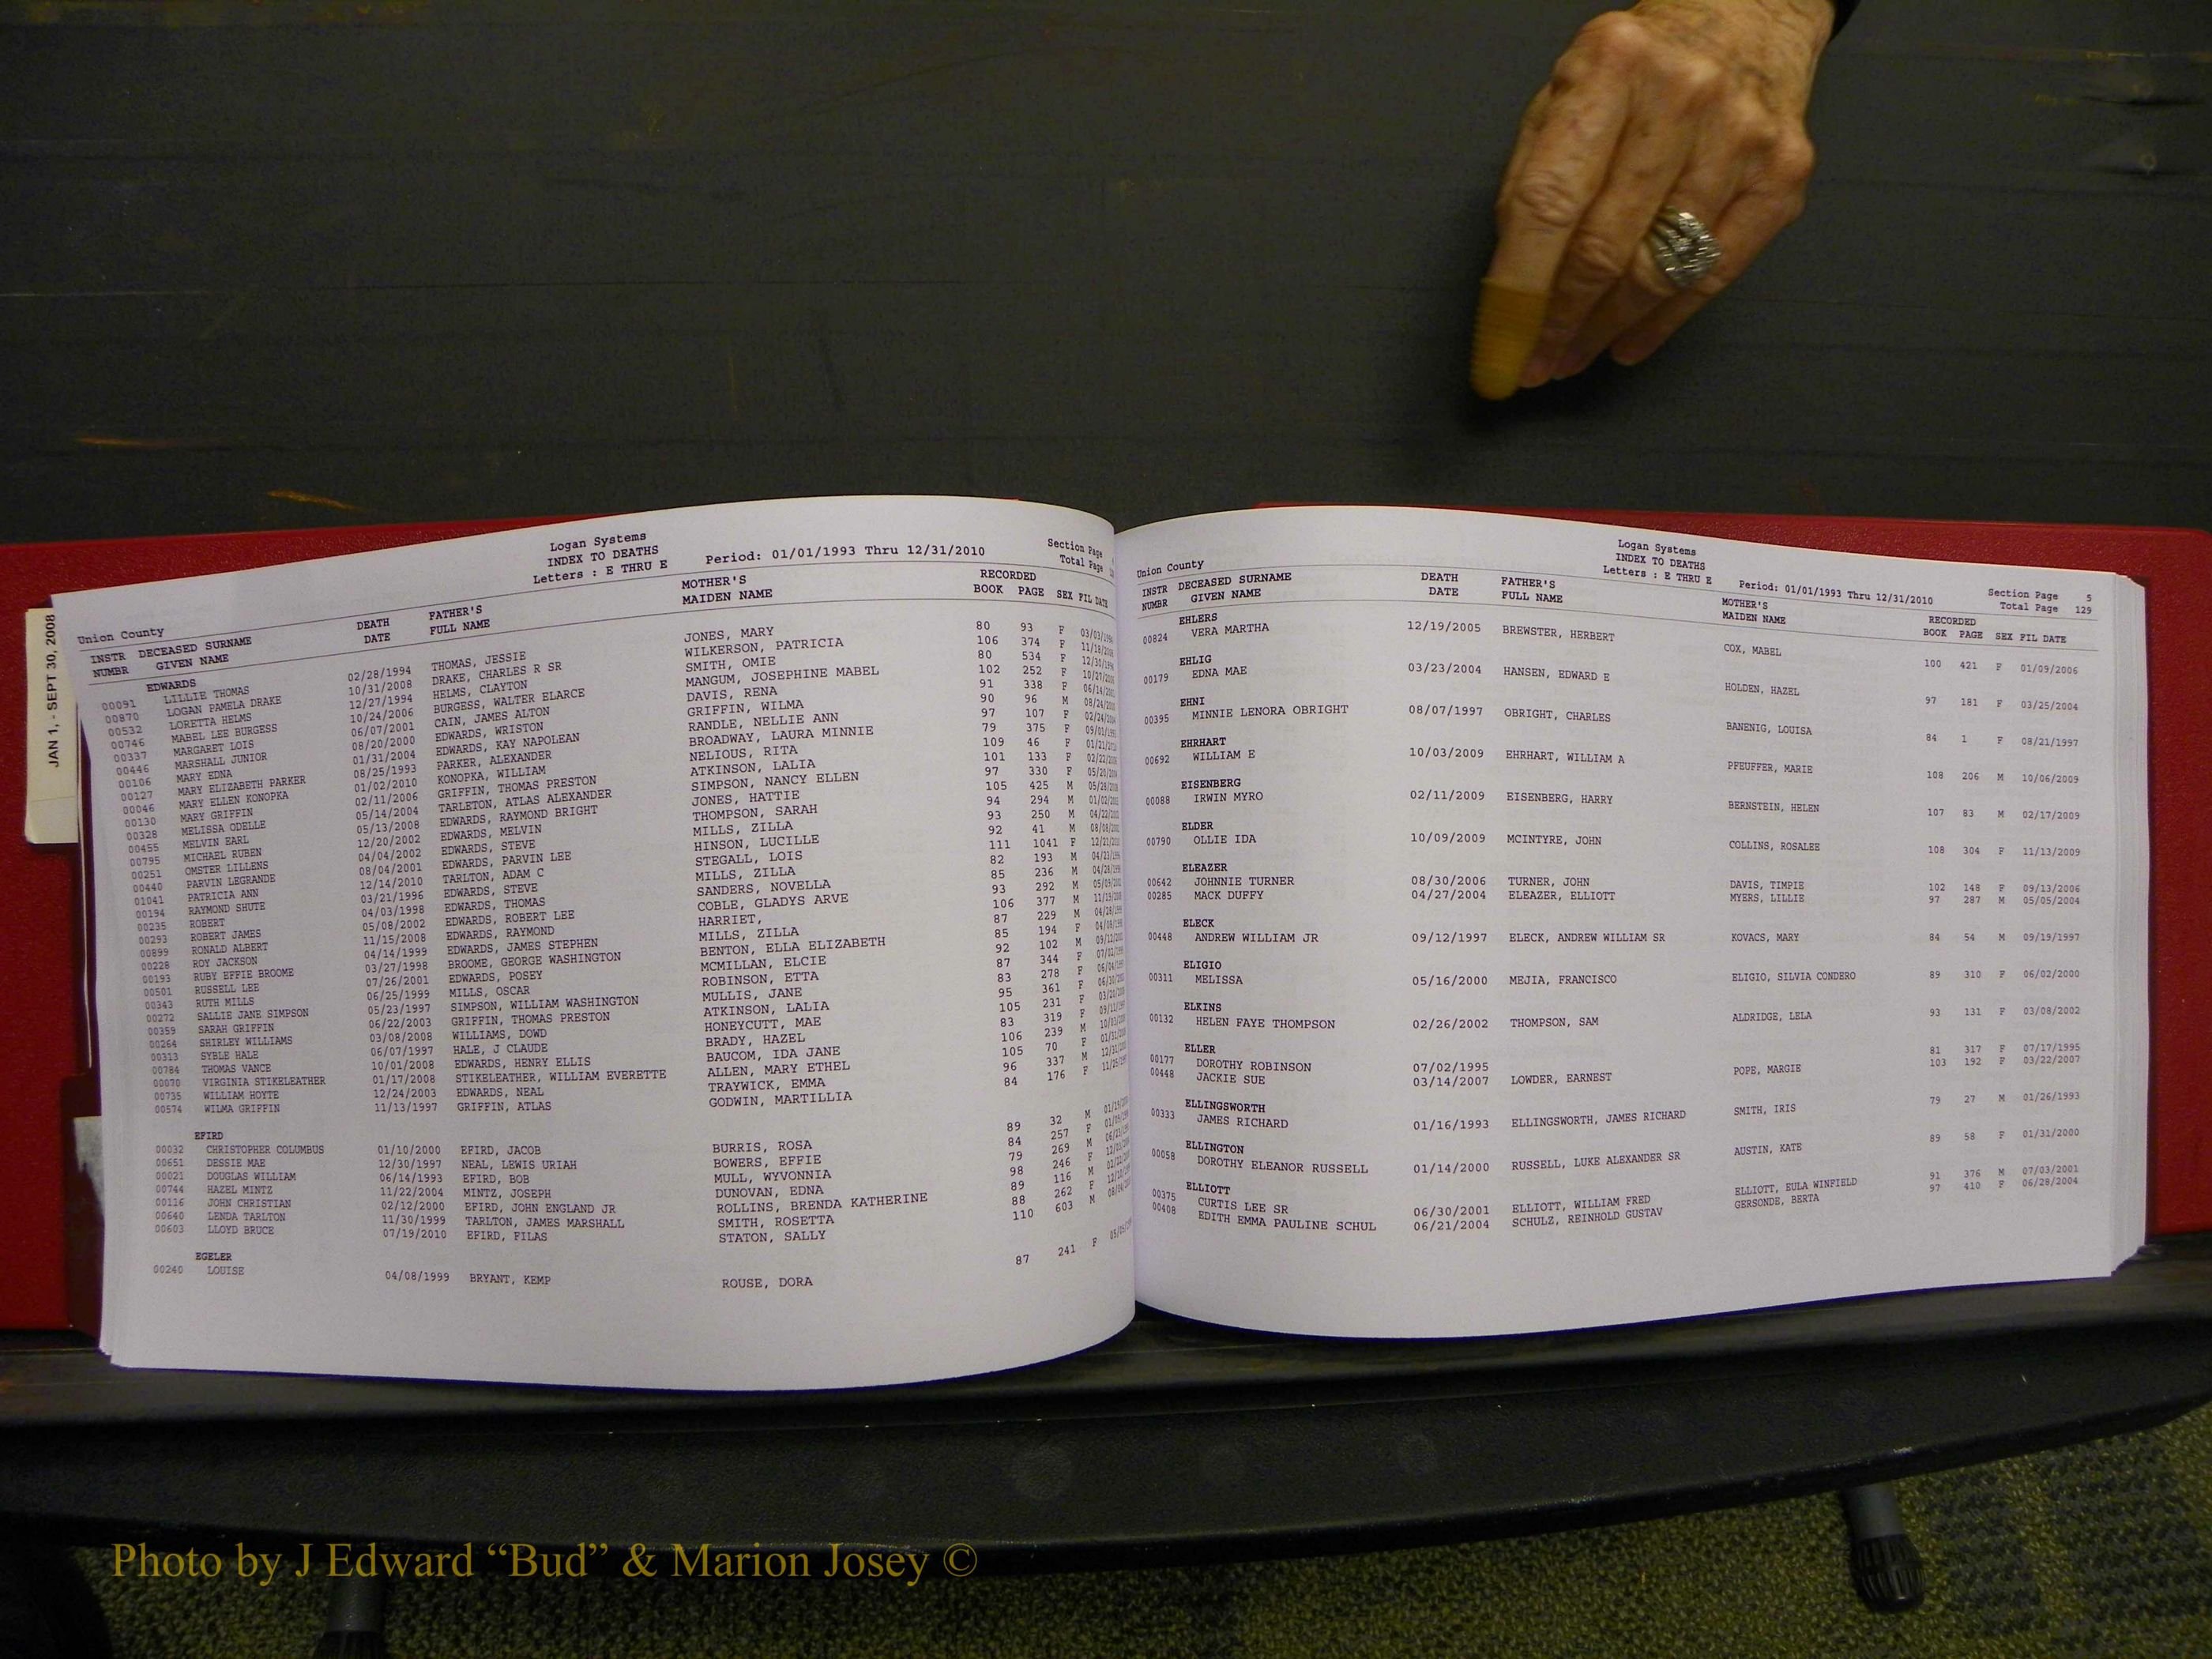 JAN 1, - SEPT 30, 2008
Logan Systems
INDEX TO DEATHS
Letters : E THRU E Period: 01/01/1993 Thru 12/31/2010
Section Page
Total Page
Union County
INSTR DECEASED SURNAME DEATH FATHER'S MOTHER'S RECORDED
NUMBR GIVEN NAME DATE FULL NAME MAIDEN NAME BOOK PAGE SEX FIL DATE
EDWARDS
00091 LILLIE THOMAS 02/28/1994 THOMAS, JESSIE JONES, MARY 80 93 F
00870 LOGAN PAMELA DRAKE 10/31/2008 DRAKE, CHARLES R SR WILKERSON, PATRICIA 106 374 F
00532 LORETTA HELMS 12/27/1994 HELMS, CLAYTON SMITH, OMIE 80 534 F
00746 MABEL LEE BURGESS 10/24/2006 BURGESS, WALTER ELARCE MANGUM, JOSEPHINE MABEL 102 252 F
00337 MARGARET LOIS 06/07/2001 CAIN, JAMES ALTON DAVIS, RENA 91 338 F
00446 MARSHALL JUNIOR 08/20/2000 EDWARDS, WRISTON GRIFFIN, WILMA 90 96 M
00106 MARY EDNA 01/31/2004 EDWARDS, KAY NAPOLEAN RANDLE, NELLIE ANN 97 107 F
00127 MARY ELIZABETH PARKER 08/25/1993 PARKER, ALEXANDER BROADWAY, LAURA MINNIE 79 375 F
00046 MARY ELLEN KONOPKA 01/02/2010 KONOPKA, WILLIAM NELIOUS, RITA 109 46 F
00130 MARY GRIFFIN 02/11/2006 GRIFFIN, THOMAS PRESTON ATKINSON, LALIA 101 133 F
00328 MELISSA ODELLE 05/14/2004 TARLETON, ATLAS ALEXANDER SIMPSON, NANCY ELLEN 97 330 F
00455 MELVIN EARL 05/13/2008 EDWARDS, RAYMOND BRIGHT JONES, HATTIE 105 425 M
00795 MICHAEL RUBEN 12/20/2002 EDWARDS, MELVIN THOMPSON, SARAH 94 294 M
00251 OMSTER LILLENS 04/04/2002 EDWARDS, STEVE MILLS, ZILLA 93 250 M
00440 PARVIN LEGRANDE 08/04/2001 EDWARDS, PARVIN LEE HINSON, LUCILLE 92 41 M
01041 PATRICIA ANN 12/14/2010 TARLTON, ADAM C STEGALL, LOIS 111 1041 F
00194 RAYMOND SHUTE 03/21/1996 EDWARDS, STEVE MILLS, ZILLA 82 193 M
00235 ROBERT 04/03/1998 EDWARDS, THOMAS SANDERS, NOVELLA 85 236 M
00293 ROBERT JAMES 05/08/2002 EDWARDS, ROBERT LEE COBLE, GLADYS ARVE 93 292 M
00899 RONALD ALBERT 11/15/2008 EDWARDS, RAYMOND HARRIET, 106 377 M
00228 ROY JACKSON 04/14/1999 EDWARDS, JAMES STEPHEN MILLS, ZILLA 87 229 M
00193 RUBY EFFIE BROOME 03/27/1998 BROOME, GEORGE WASHINGTON BENTON, ELLA ELIZABETH 85 194 F
00501 RUSSELL LEE 07/26/2001 EDWARDS, POSEY MCMILLAN, ELCIE 92 102 M
00343 RUTH MILLS 06/25/1999 MILLS, OSCAR ROBINSON, ETTA 87 344 F
00272 SALLIE JANE SIMPSON 05/23/1997 SIMPSON, WILLIAM WASHINGTON MULLIS, JANE 83 278 F
00359 SARAH GRIFFIN 06/22/2003 GRIFFIN, THOMAS PRESTON ATKINSON, LALIA 95 361 F
00264 SHIRLEY WILLIAMS 03/08/2008 WILLIAMS, DOWD HONEYCUTT, MAE 105 231 F
00313 SYBLE HALE 06/07/1997 HALE, J CLAUDE BRADY, HAZEL 83 319 F
00784 THOMAS VANCE 10/01/2008 EDWARDS, HENRY ELLIS BAUCOM, IDA JANE 106 239 M
00070 VIRGINIA STIKELEATHER 01/17/2008 STIKELEATHER, WILLIAM EVERETTE ALLEN, MARY ETHEL 105 70 F
00735 WILLIAM HOYTE 12/24/2003 EDWARDS, NEAL TRAYWICK, EMMA 96 337 M
00574 WILMA GRIFFIN 11/13/1997 GRIFFIN, ATLAS GODWIN, MARTILLIA 84 176 F
EFIRD
00032 CHRISTOPHER COLUMBUS 01/10/2000 EFIRD, JACOB BURRIS, ROSA 89 32 M
00651 DESSIE MAE 12/30/1997 NEAL, LEWIS URIAH BOWERS, EFFIE 84 257 F
00021 DOUGLAS WILLIAM 06/14/1993 EFIRD, BOB MULL, WYVONNIA 79 269 M
00744 HAZEL MINTZ 11/22/2004 MINTZ, JOSEPH DUNOVAN, EDNA 98 246 F
00116 JOHN CHRISTIAN 02/12/2000 EFIRD, JOHN ENGLAND JR ROLLINS, BRENDA KATHERINE 89 116 M
00640 LENDA TARLTON 11/30/1999 TARLTON, JAMES MARSHALL SMITH, ROSETTA 88 262 F
00603 LLOYD BRUCE 07/19/2010 EFIRD, FILAS STATON, SALLY 110 603 M
EGELER
00240 LOUISE 04/08/1999 BRYANT, KEMP ROUSE, DORA 87 241 F
Logan Systems
INDEX TO DEATHS
Letters : E THRU E Period: 01/01/1993 Thru 12/31/2010
Section Page 5
Total Page 129
Union County
INSTR DECEASED SURNAME DEATH FATHER'S MOTHER'S RECORDED
NUMBR GIVEN NAME DATE FULL NAME MAIDEN NAME BOOK PAGE SEX FIL DATE
EHLERS
00824 VERA MARTHA 12/19/2005 BREWSTER, HERBERT COX, MABEL 100 421 F 01/09/2006
EHLIG
00179 EDNA MAE 03/23/2004 HANSEN, EDWARD E HOLDEN, HAZEL 97 181 F 03/25/2004
EHNI
00395 MINNIE LENORA OBRIGHT 08/07/1997 OBRIGHT, CHARLES BANENIG, LOUISA 84 1 F 08/21/1997
EHRHART
00692 WILLIAM E 10/03/2009 EHRHART, WILLIAM A PFEUFFER, MARIE 108 206 M 10/06/2009
EISENBERG
00088 IRWIN MYRO 02/11/2009 EISENBERG, HARRY BERNSTEIN, HELEN 107 83 M 02/17/2009
ELDER
00790 OLLIE IDA 10/09/2009 MCINTYRE, JOHN COLLINS, ROSALEE 108 304 F 11/13/2009
ELEAZER
00642 JOHNNIE TURNER 08/30/2006 TURNER, JOHN DAVIS, TIMPIE 102 148 F 09/13/2006
00285 MACK DUFFY 04/27/2004 ELEAZER, ELLIOTT MYERS, LILLIE 97 287 M 05/05/2004
ELECK
00448 ANDREW WILLIAM JR 09/12/1997 ELECK, ANDREW WILLIAM SR KOVACS, MARY 84 54 M 09/19/1997
ELIGIO
00311 MELISSA 05/16/2000 MEJIA, FRANCISCO ELIGIO, SILVIA CONDERO 89 310 F 06/02/2000
ELKINS
00132 HELEN FAYE THOMPSON 02/26/2002 THOMPSON, SAM ALDRIDGE, LELA 93 131 F 03/08/2002
ELLER
00177 DOROTHY ROBINSON 07/02/1995 81 317 F 07/17/1995
00448 JACKIE SUE 03/14/2007 LOWDER, EARNEST POPE, MARGIE 103 192 F 03/22/2007
ELLINGSWORTH
00333 JAMES RICHARD 01/16/1993 ELLINGSWORTH, JAMES RICHARD SMITH, IRIS 79 27 M 01/26/1993
ELLINGTON
00058 DOROTHY ELEANOR RUSSELL 01/14/2000 RUSSELL, LUKE ALEXANDER SR AUSTIN, KATE 89 58 F 01/31/2000
ELLIOTT
00375 CURTIS LEE SR 06/30/2001 ELLIOTT, WILLIAM FRED ELLIOTT, EULA WINFIELD 91 376 M 07/03/2001
00408 EDITH EMMA PAULINE SCHUL 06/21/2004 SCHULZ, REINHOLD GUSTAV GERSONDE, BERTA 97 410 F 06/28/2004
Photo by J Edward “Bud” & Marion Josey ©